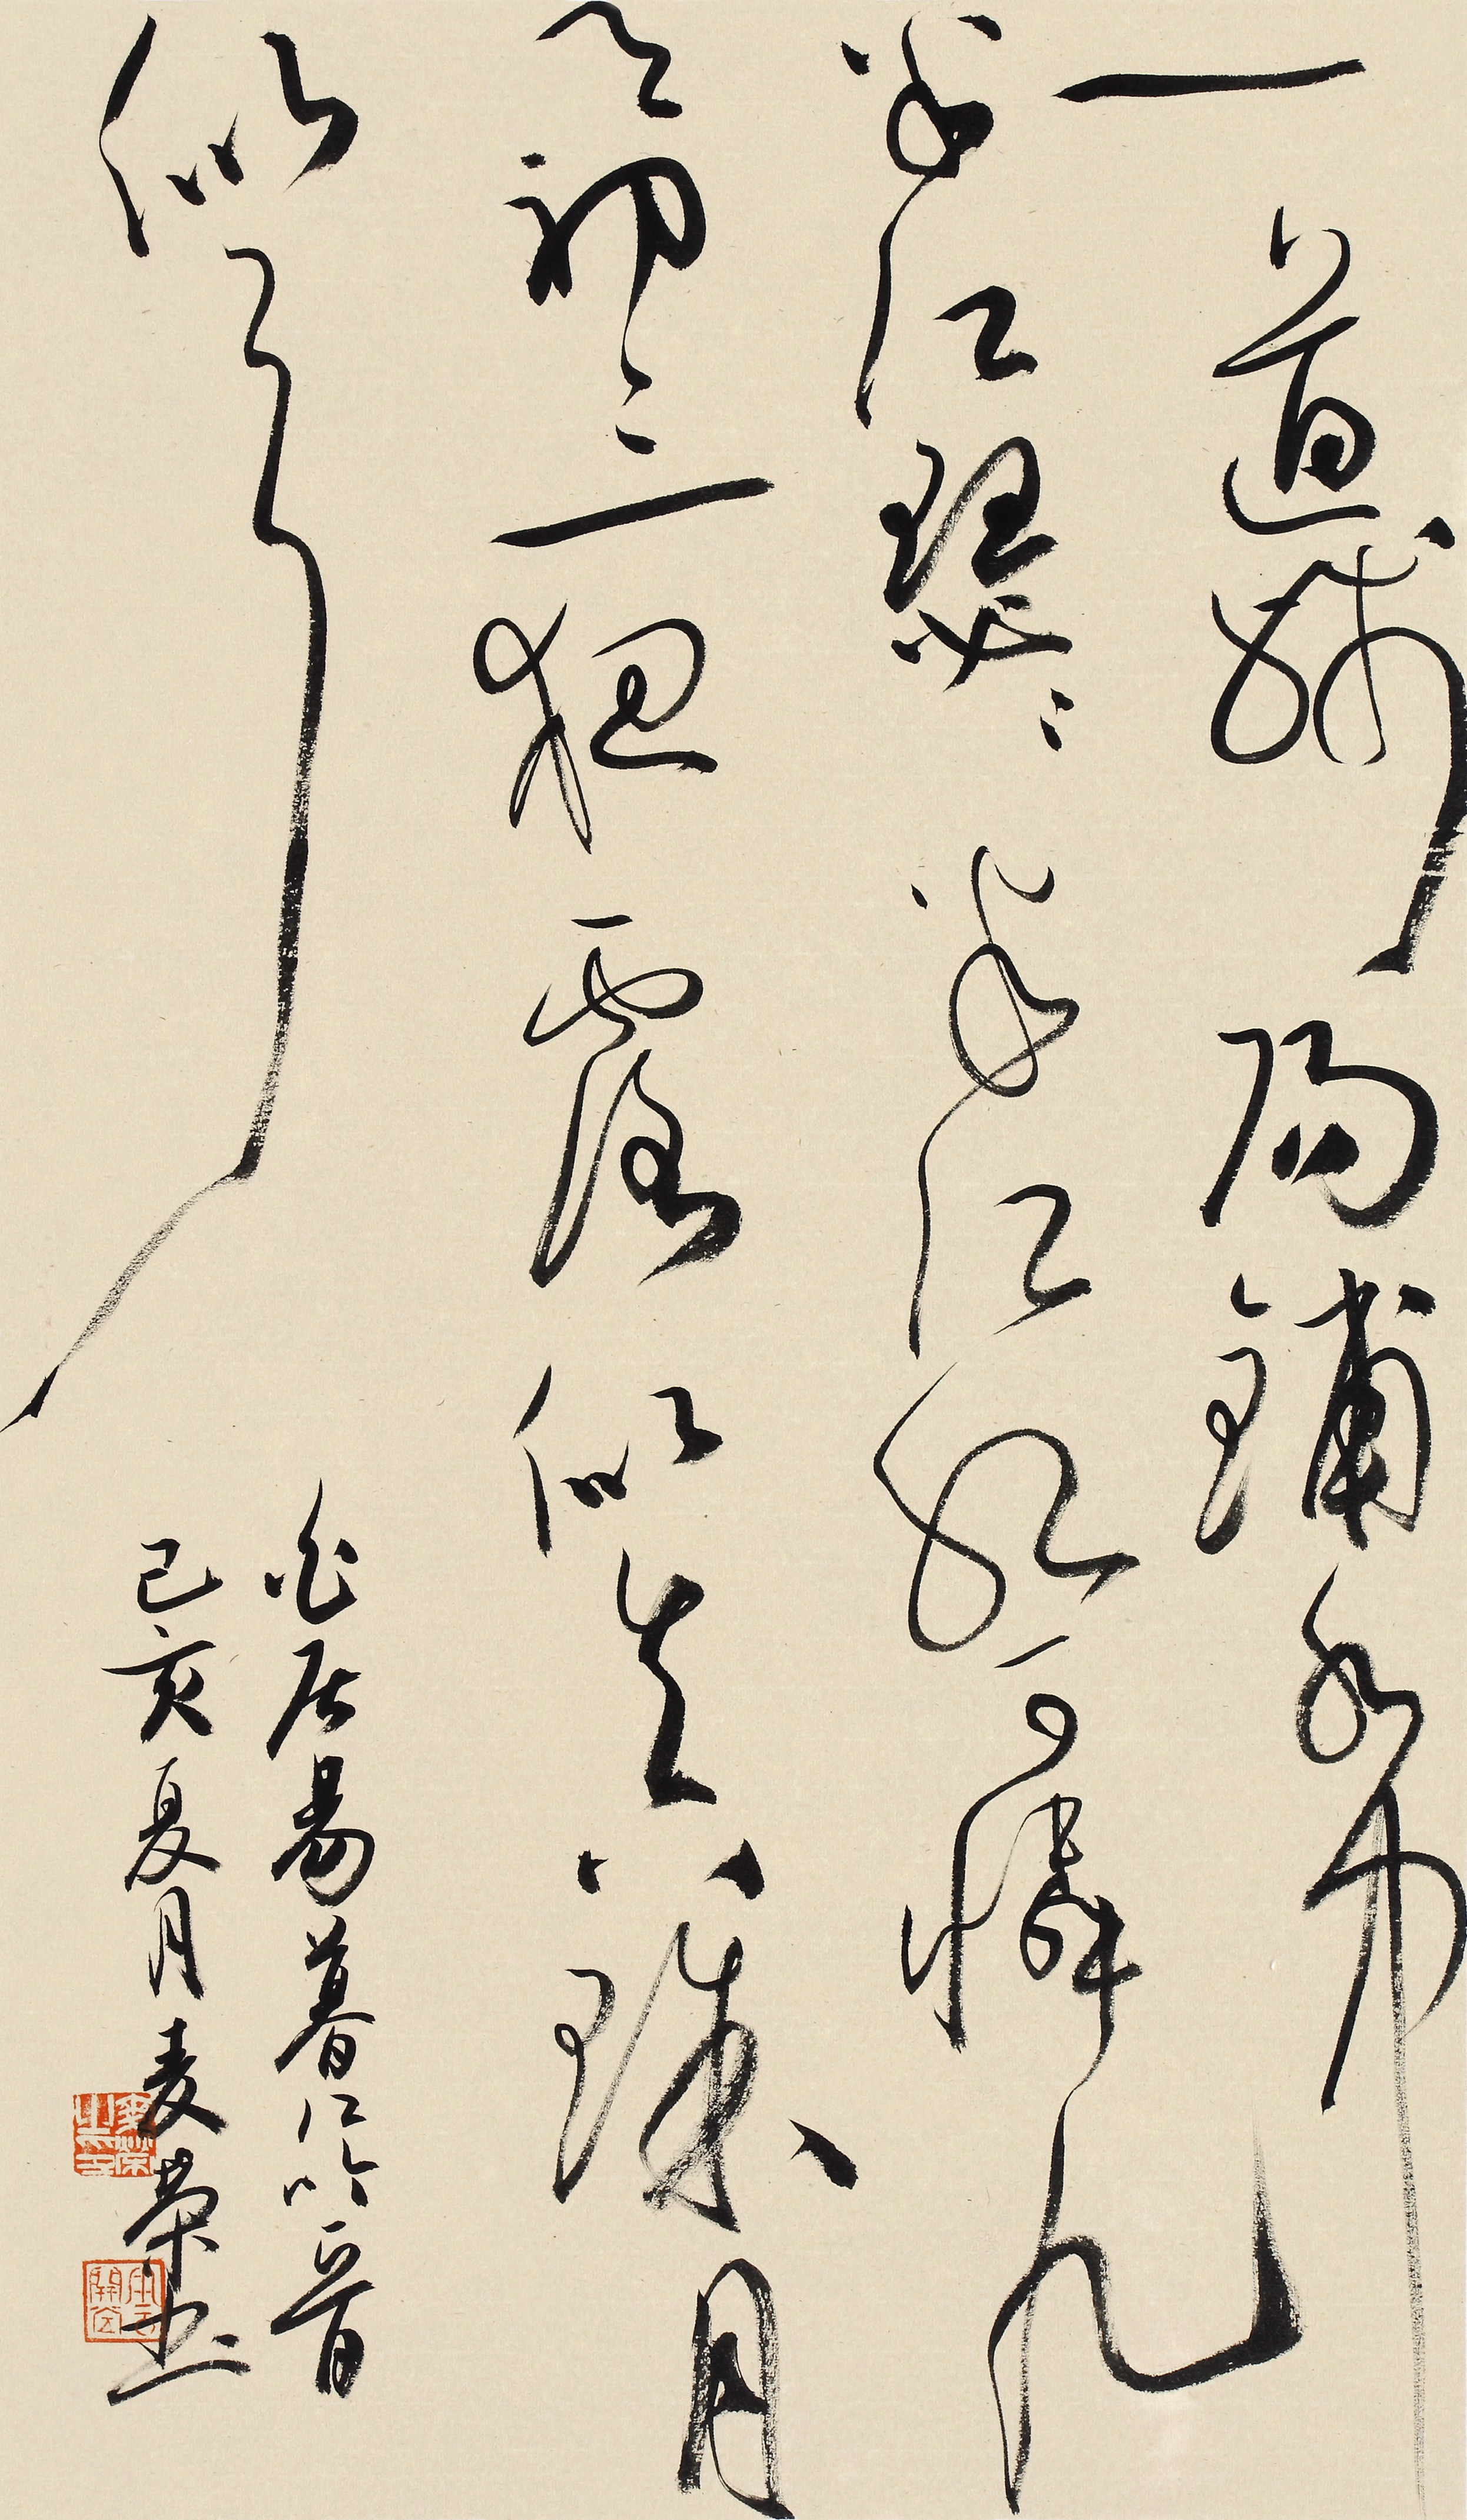 一道殘陽鋪水中
半江瑟々半江紅可憐九
月初三夜露似真珠月
似弓
白居易暮江吟一首
己亥夏月麦荣书